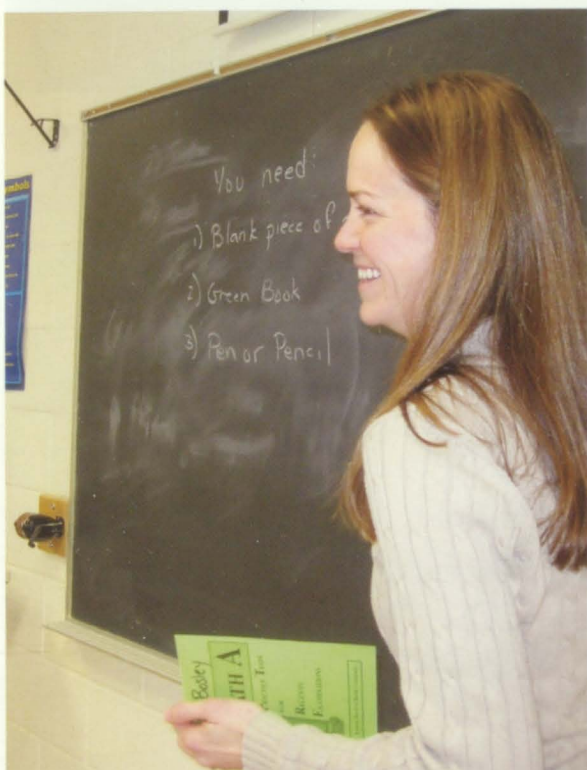 You need:
1) Blank piece of
2) Green Book
3) Pen or Pencil
ymbols
Bosley
ATH A
Practice Tests
for
Regents
Examinations